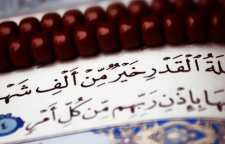 لَةُ ٱلْقَدْرِ خَيْرٌ مِّنْ أَلْفِ شَهْ
هَا بِإِذْنِ رَبِّهِم مِّن كُلِّ أَمْرٍ
٤